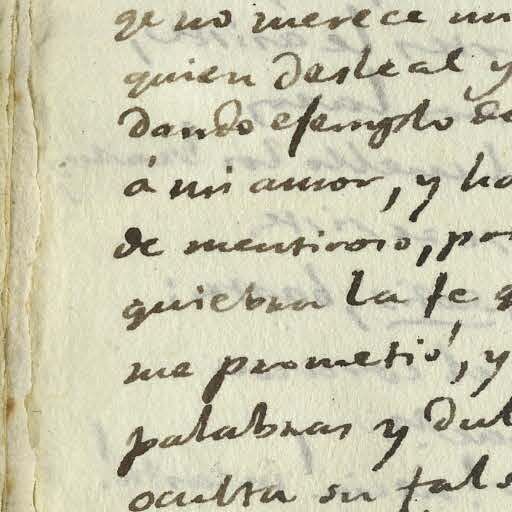 qe no merece mi
quien desleal y
dando esemplo de
á mi amor, y ha
de mentiroso, por
quiebra la fe q
me prometió, y
palabras y dul
oculta su fals